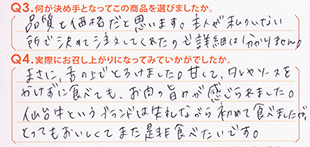 Q3.何が決め手となってこの商品を選びましたか。
品質と価格だと思います。本人が私のいない
所で決めて注文してくれたので詳細は分かりません。
Q4.実際にお召し上がりになってみていかがでしたか。
まさに、舌の上でとろけました。甘くて、タレやソースを
かけずに食べても、お肉の旨みが感じられました。
仙台牛というブランドは生れながら初めて食べましたが、
とってもおいしくてまた是非食べたいです。